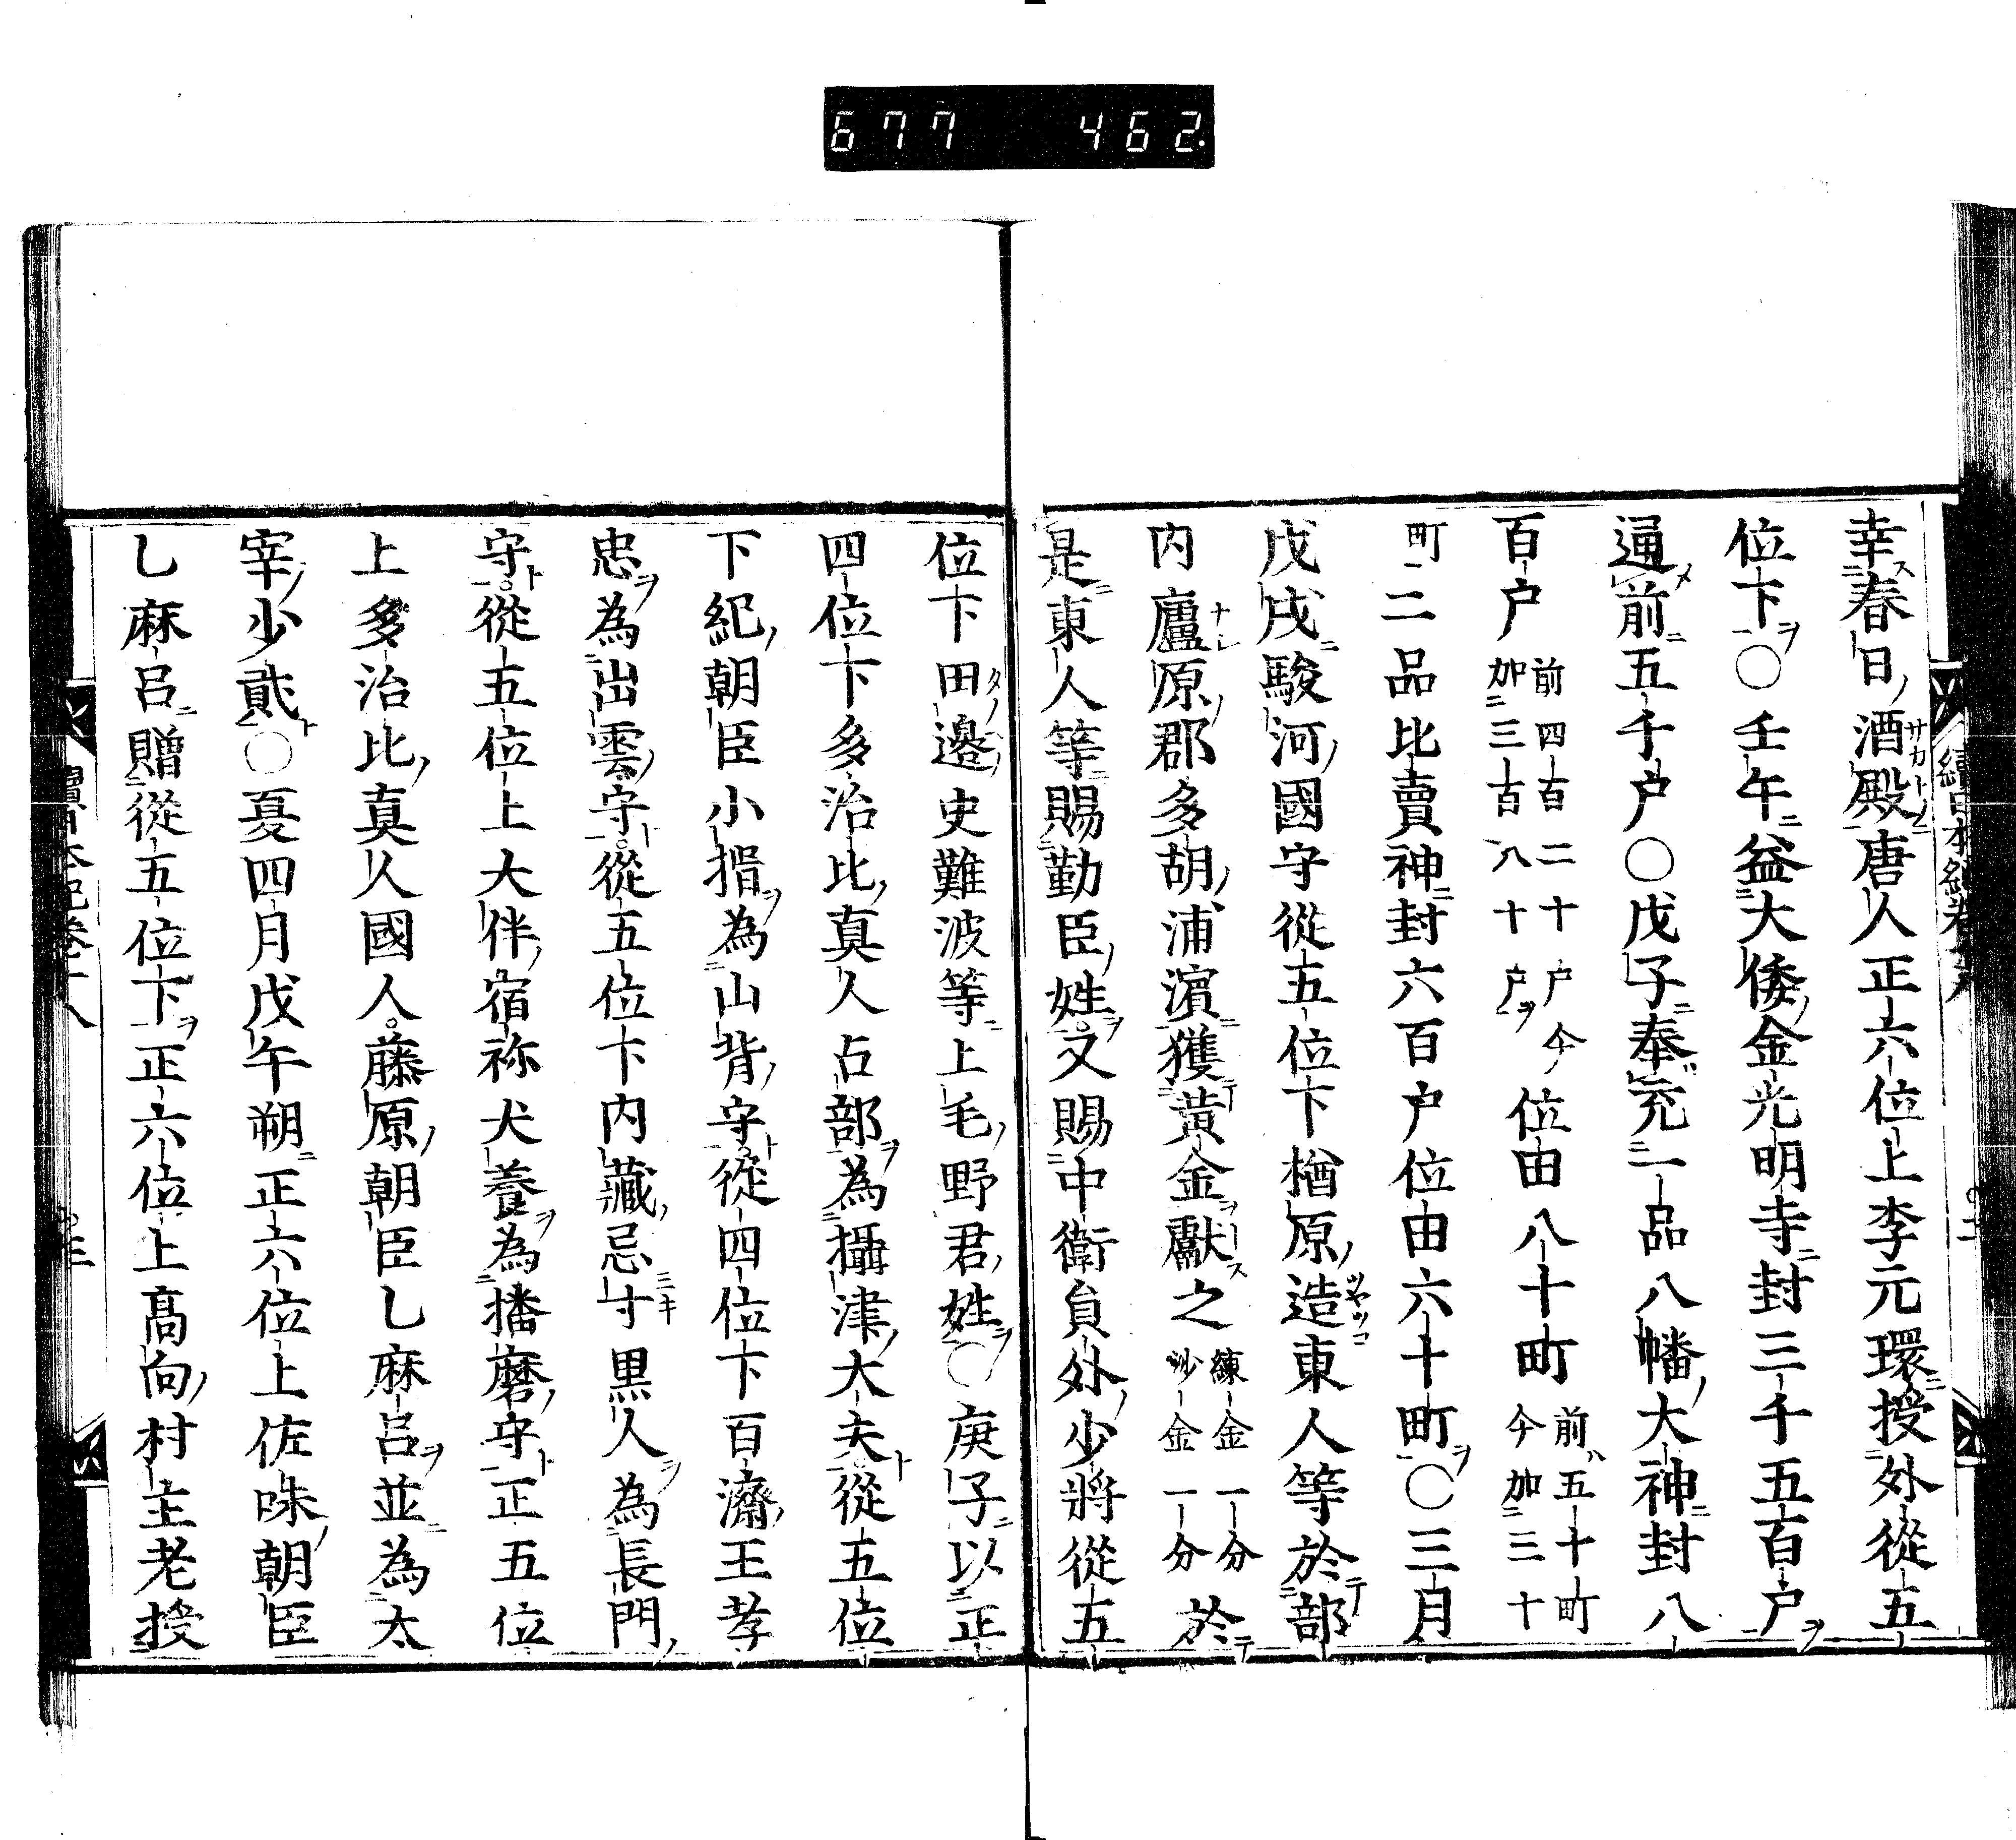 677 462.
幸春日酒殿唐人正六位上李元環授外從五
位下〇壬午益大倭金光明寺封三千五百戸
通前五千戸〇戊子奉充一品八幡大神封八
百戸前四百二十戸今加三百八十戸位田八十町前五十町今加三十
町二品比賣神封六百戸位田六十町〇三月
戊戌駿河國守從五位下楢原造東人等於部
内廬原郡多胡浦濱獲黃金獻之練金一分沙金一分於
是東人等賜勤臣姓又賜中衞員外少將從五
位下田邊史難波等上毛野君姓〇庚子以正
四位下多治比真人占部為攝津大夫從五位
下紀朝臣小揖為山背守從四位下百濟王孝
忠為出雲守從五位下内藏忌寸黒人為長門
守從五位上大伴宿祢犬養為播磨守正五位
上多治比真人國人藤原朝臣乙麻呂並為太
宰少貳〇夏四月戊午朔正六位上佐味朝臣
乙麻呂贈從五位下正六位上髙向村主老授